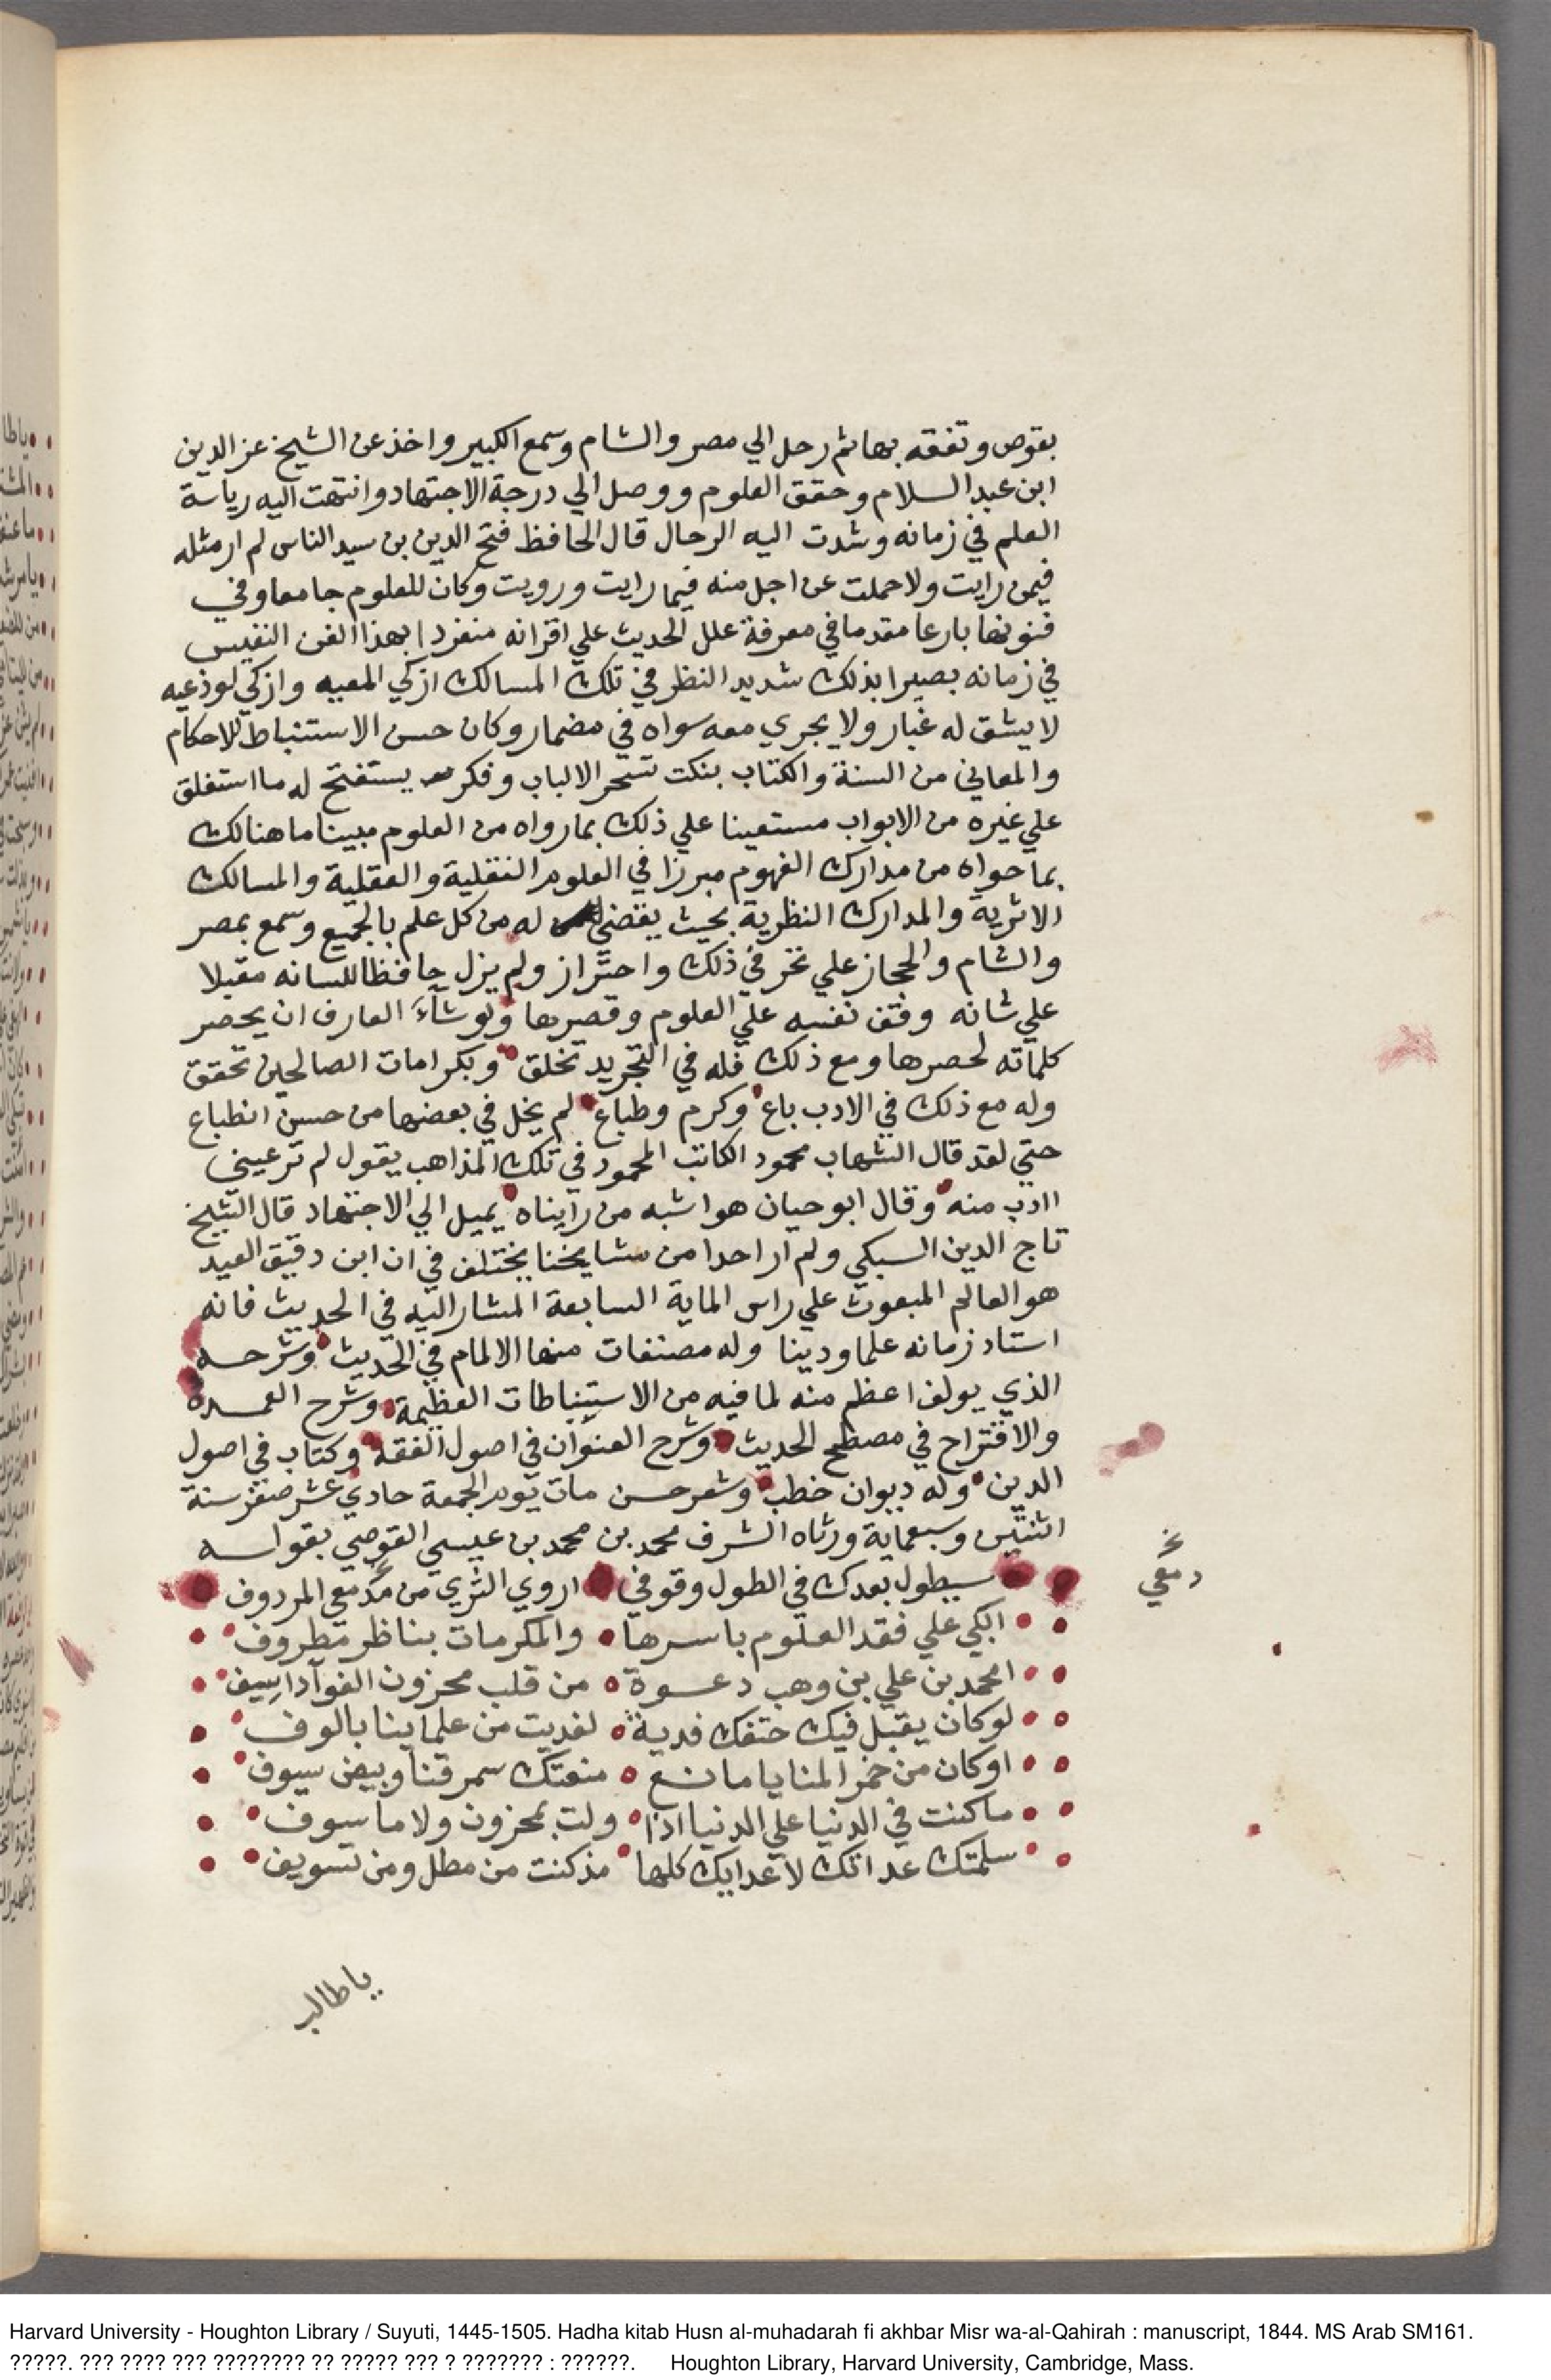 بقوص وتفقه بها ثم رحل الي مصر والشام وسمع الكبير واخذ عن الشيخ عز الدين
ابن عبد السلام وحقق العلوم ووصل الي درجة الاجتهاد وانتهت اليه رياسة
العلم في زمانه وشدت اليه الرحال قال الحافظ فتح الدين بن سيد الناس لم ار مثله
فيمن رايت ولا حملت عن اجل منه فيما رايت ورويت وكان للعلوم جامعا وفي
فنونها بارعا مقدما في معرفة علل الحديث علي اقرانه منفردا بهذا الفن النفيس
في زمانه بصيرا بذلك شديد النظر في تلك المسالك ازكي المعيه وازكي لوذعيه
لا يشق له غبار ولا يجري معه سواه في مضمار وكان حسن الاستنباط للاحكام
والمعاني من السنة والكتاب بنكت تسحر الالباب وفكر يستفتح له ما استغلق
علي غيره من الابواب مستعينا علي ذلك بما رواه من العلوم مبينا ما هنالك
بما حواه من مدارك الفهوم مبرزا في العلوم النقلية والعقلية والمسالك
الاثرية والمدارك النظرية بحيث يقضي له من كل علم بالجميع وسمع بمصر
والشام والحجاز علي تحر في ذلك واحتراز ولم يزل حافظا للسانه مقبلا
علي شانه وقف نفسه علي العلوم وقصرها ولو شآء العارف ان يحصر
كلماته لحصرها ومع ذلك فله في التجريد تخلق وبكرامات الصالحين تحقق
وله مع ذلك في الادب باع وكرم وطباع لم يخل في بعضها من حسن انطباع
حتي لقد قال الشهاب محمود الكاتب المحمود في تلك المذاهب يقول لم تر عيني
اادب منه وقال ابو حيان هو اشبه من رايناه يميل الي الاجتهاد قال الشيخ
تاج الدين السبكي ولم ار احدا من مشايخنا يختلف في ان ابن دقيق العيد
هو العالم المبعوث علي راس الماية السابعة المشار اليه في الحديث فانه
استاد زمانه علما ودينا وله مصنفات منها الالمام في الحديث وشرحه
الذي يولف اعظم منه لما فيه من الاستنباطات العظيمة وشرح العمدة
والاقتراح في مصطلح الحديث وشرح العنوان في اصول الفقه وكتاب في اصول
الدين وله ديوان خطب وشعر حسن مات يوم الجمعة حادي عشر صفر سنة
اثنتين وسبعماية ورثاه الشرف محمد بن محمد بن عيسي القوصي بقوله
سيطول بعدك في الطول وقوفي اروي الثري من مدمعي المردوف
دمعي
ابكي علي فقد العلوم باسرها والمكرمات بناظر مطروف
امحمد بن علي بن وهب دعوة من قلب محزون الفوآد اسيف
لو كان يقبل فيك حتفك فدية لفديت من علماينا بالوف
او كان من خمر المنايا مانع منعتك سمر قنا وبيض سيوف
ما كنت في الدنيا علي الدنيا اذا ولت بمحزون ولا ماسوف
سلمتك عداتك لاعدايك كلها مذ كنت من مطل ومن تسويف
يا طالب
Harvard University - Houghton Library / Suyuti, 1445-1505. Hadha kitab Husn al-muhadarah fi akhbar Misr wa-al-Qahirah : manuscript, 1844. MS Arab SM161.
?????. ??? ???? ??? ???????? ?? ????? ??? ? ??????? : ??????. Houghton Library, Harvard University, Cambridge, Mass.